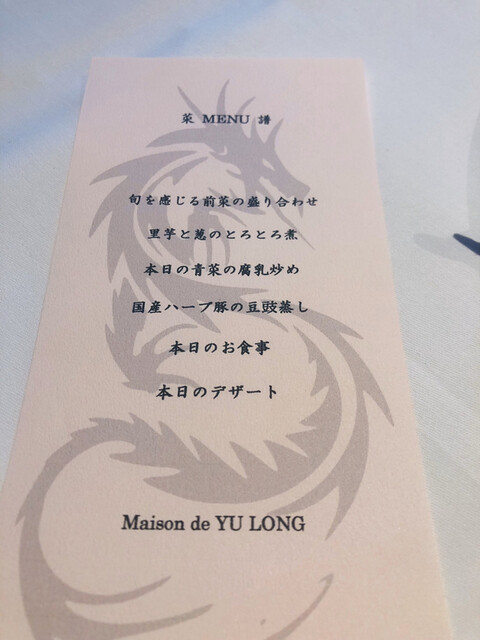 菜 MENU 譜
旬を感じる前菜の盛り合わせ
里芋と葱のとろとろ煮
本日の青菜の腐乳炒め
国産ハーブ豚の豆豉蒸し
本日のお食事
本日のデザート
Maison de YU LONG